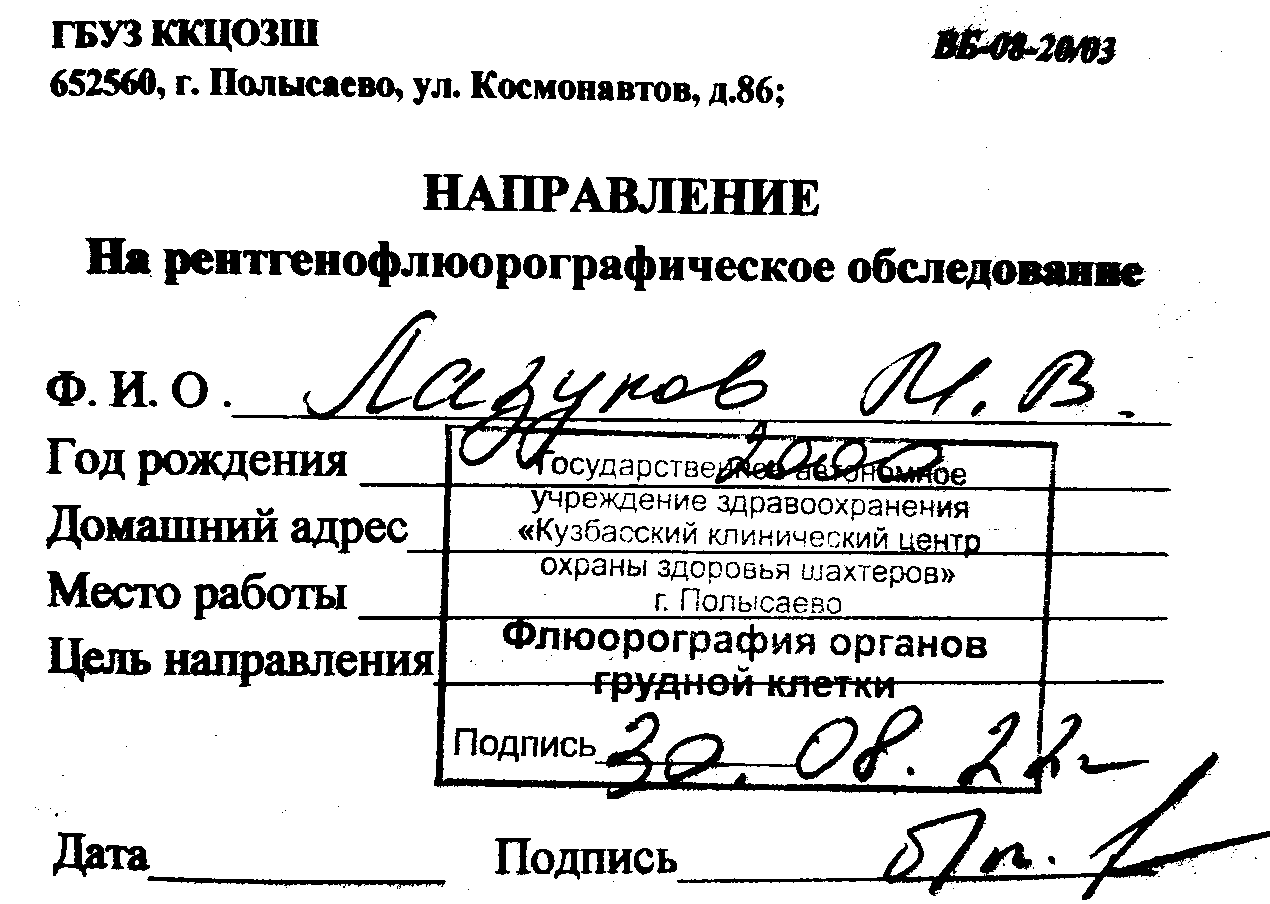 ГБУЗ ККЦОЗШ
ВБ-08-20/03
652560, г. Полысаево, ул. Космонавтов, д.86;
НАПРАВЛЕНИЕ
На рентгенофлюорографическое обследование
Ф. И. О . Лазуков М. В.
Год рождения 2000
Домашний адрес
Место работы
Цель направления
Государственное автономное
учреждение здравоохранения
«Кузбасский клинический центр
охраны здоровья шахтеров»
г. Полысаево
Флюорография органов
грудной клетки
Подпись 30.08.22г
Дата Подпись